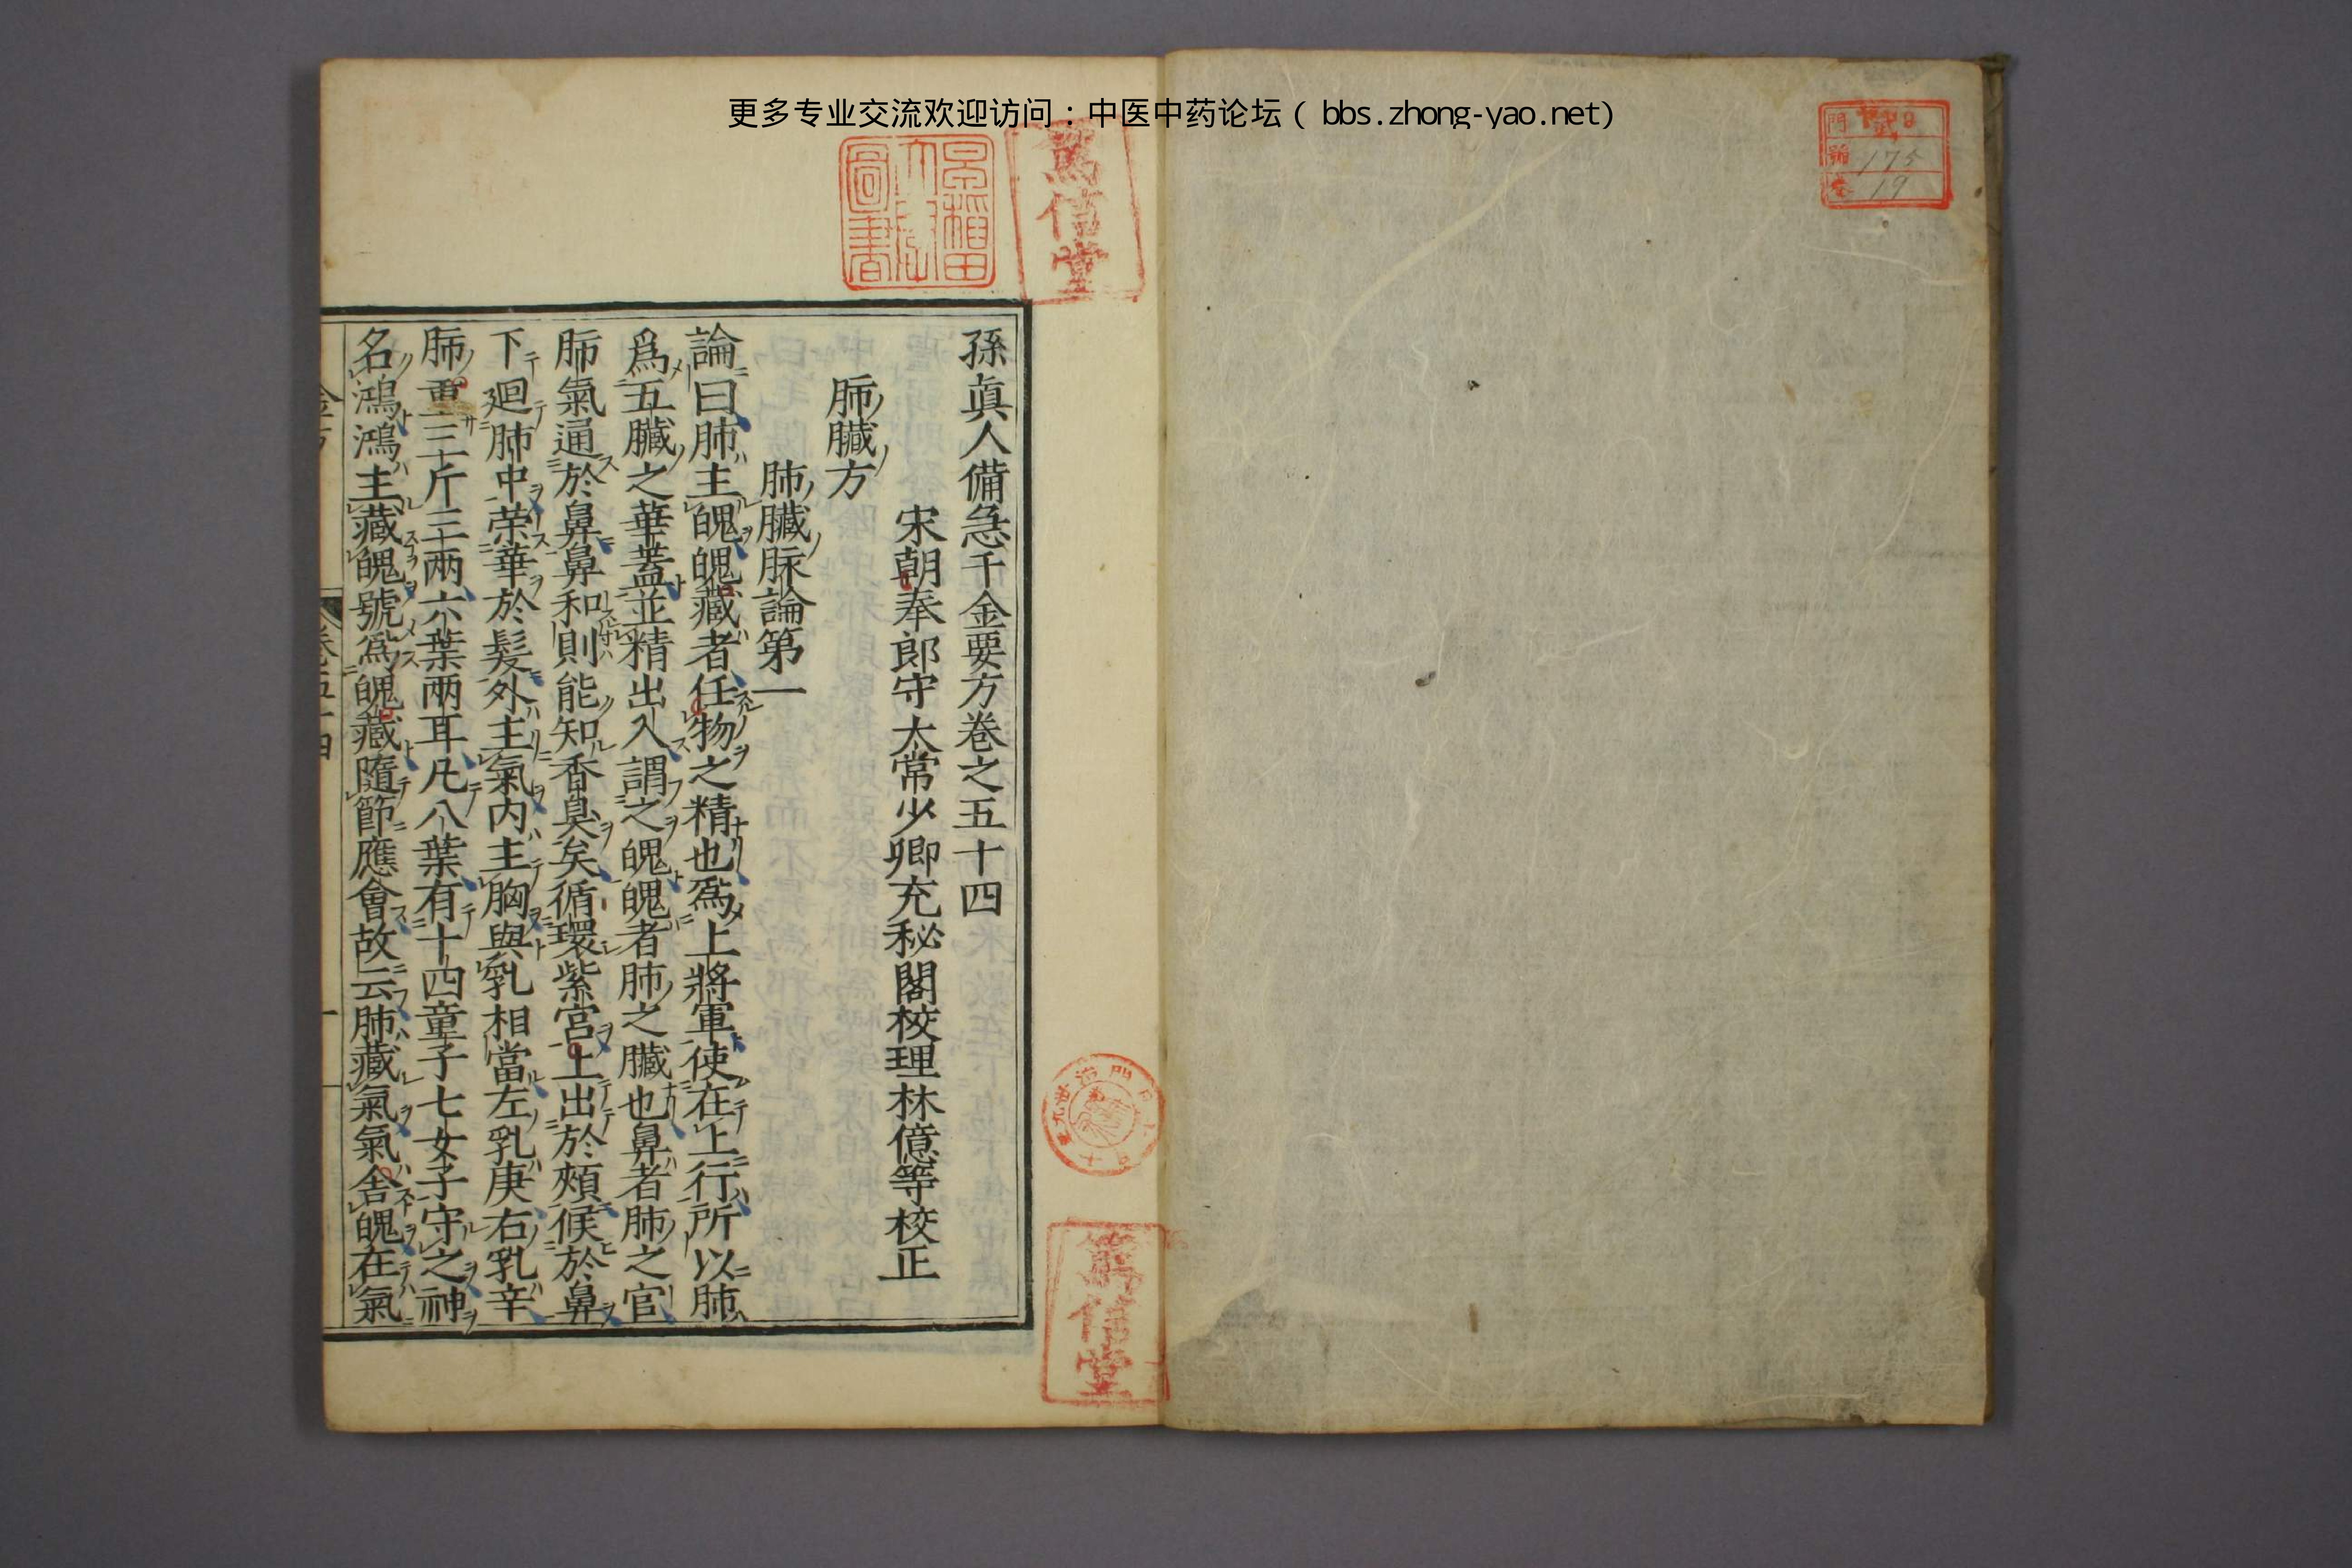 更多专业交流欢迎访问：中医中药论坛（bbs.zhong-yao.net）
175
19
篤信堂
孫眞人備急千金要方卷之五十四
宋朝奉郎守太常少卿充秘閣校理林億等校正
肺臟方
肺臟脉論第一
論曰肺主魄魄藏者任物之精也爲上將軍使在上行所以肺
爲五臟之華蓋並精出入謂之魄魄者肺之臟也鼻者肺之官
肺氣通於鼻鼻和則能知香臭矣循環紫宮上出於頰候於鼻
下廻肺中荣華於髮外主氣内主胸與乳相當左乳庚右乳辛
肺重三斤三兩六葉兩耳凡八葉有十四童子七女子守之神
名鴻鴻主藏魄號爲魄藏隨節應會故云肺藏氣氣舍魄在氣
篤信堂